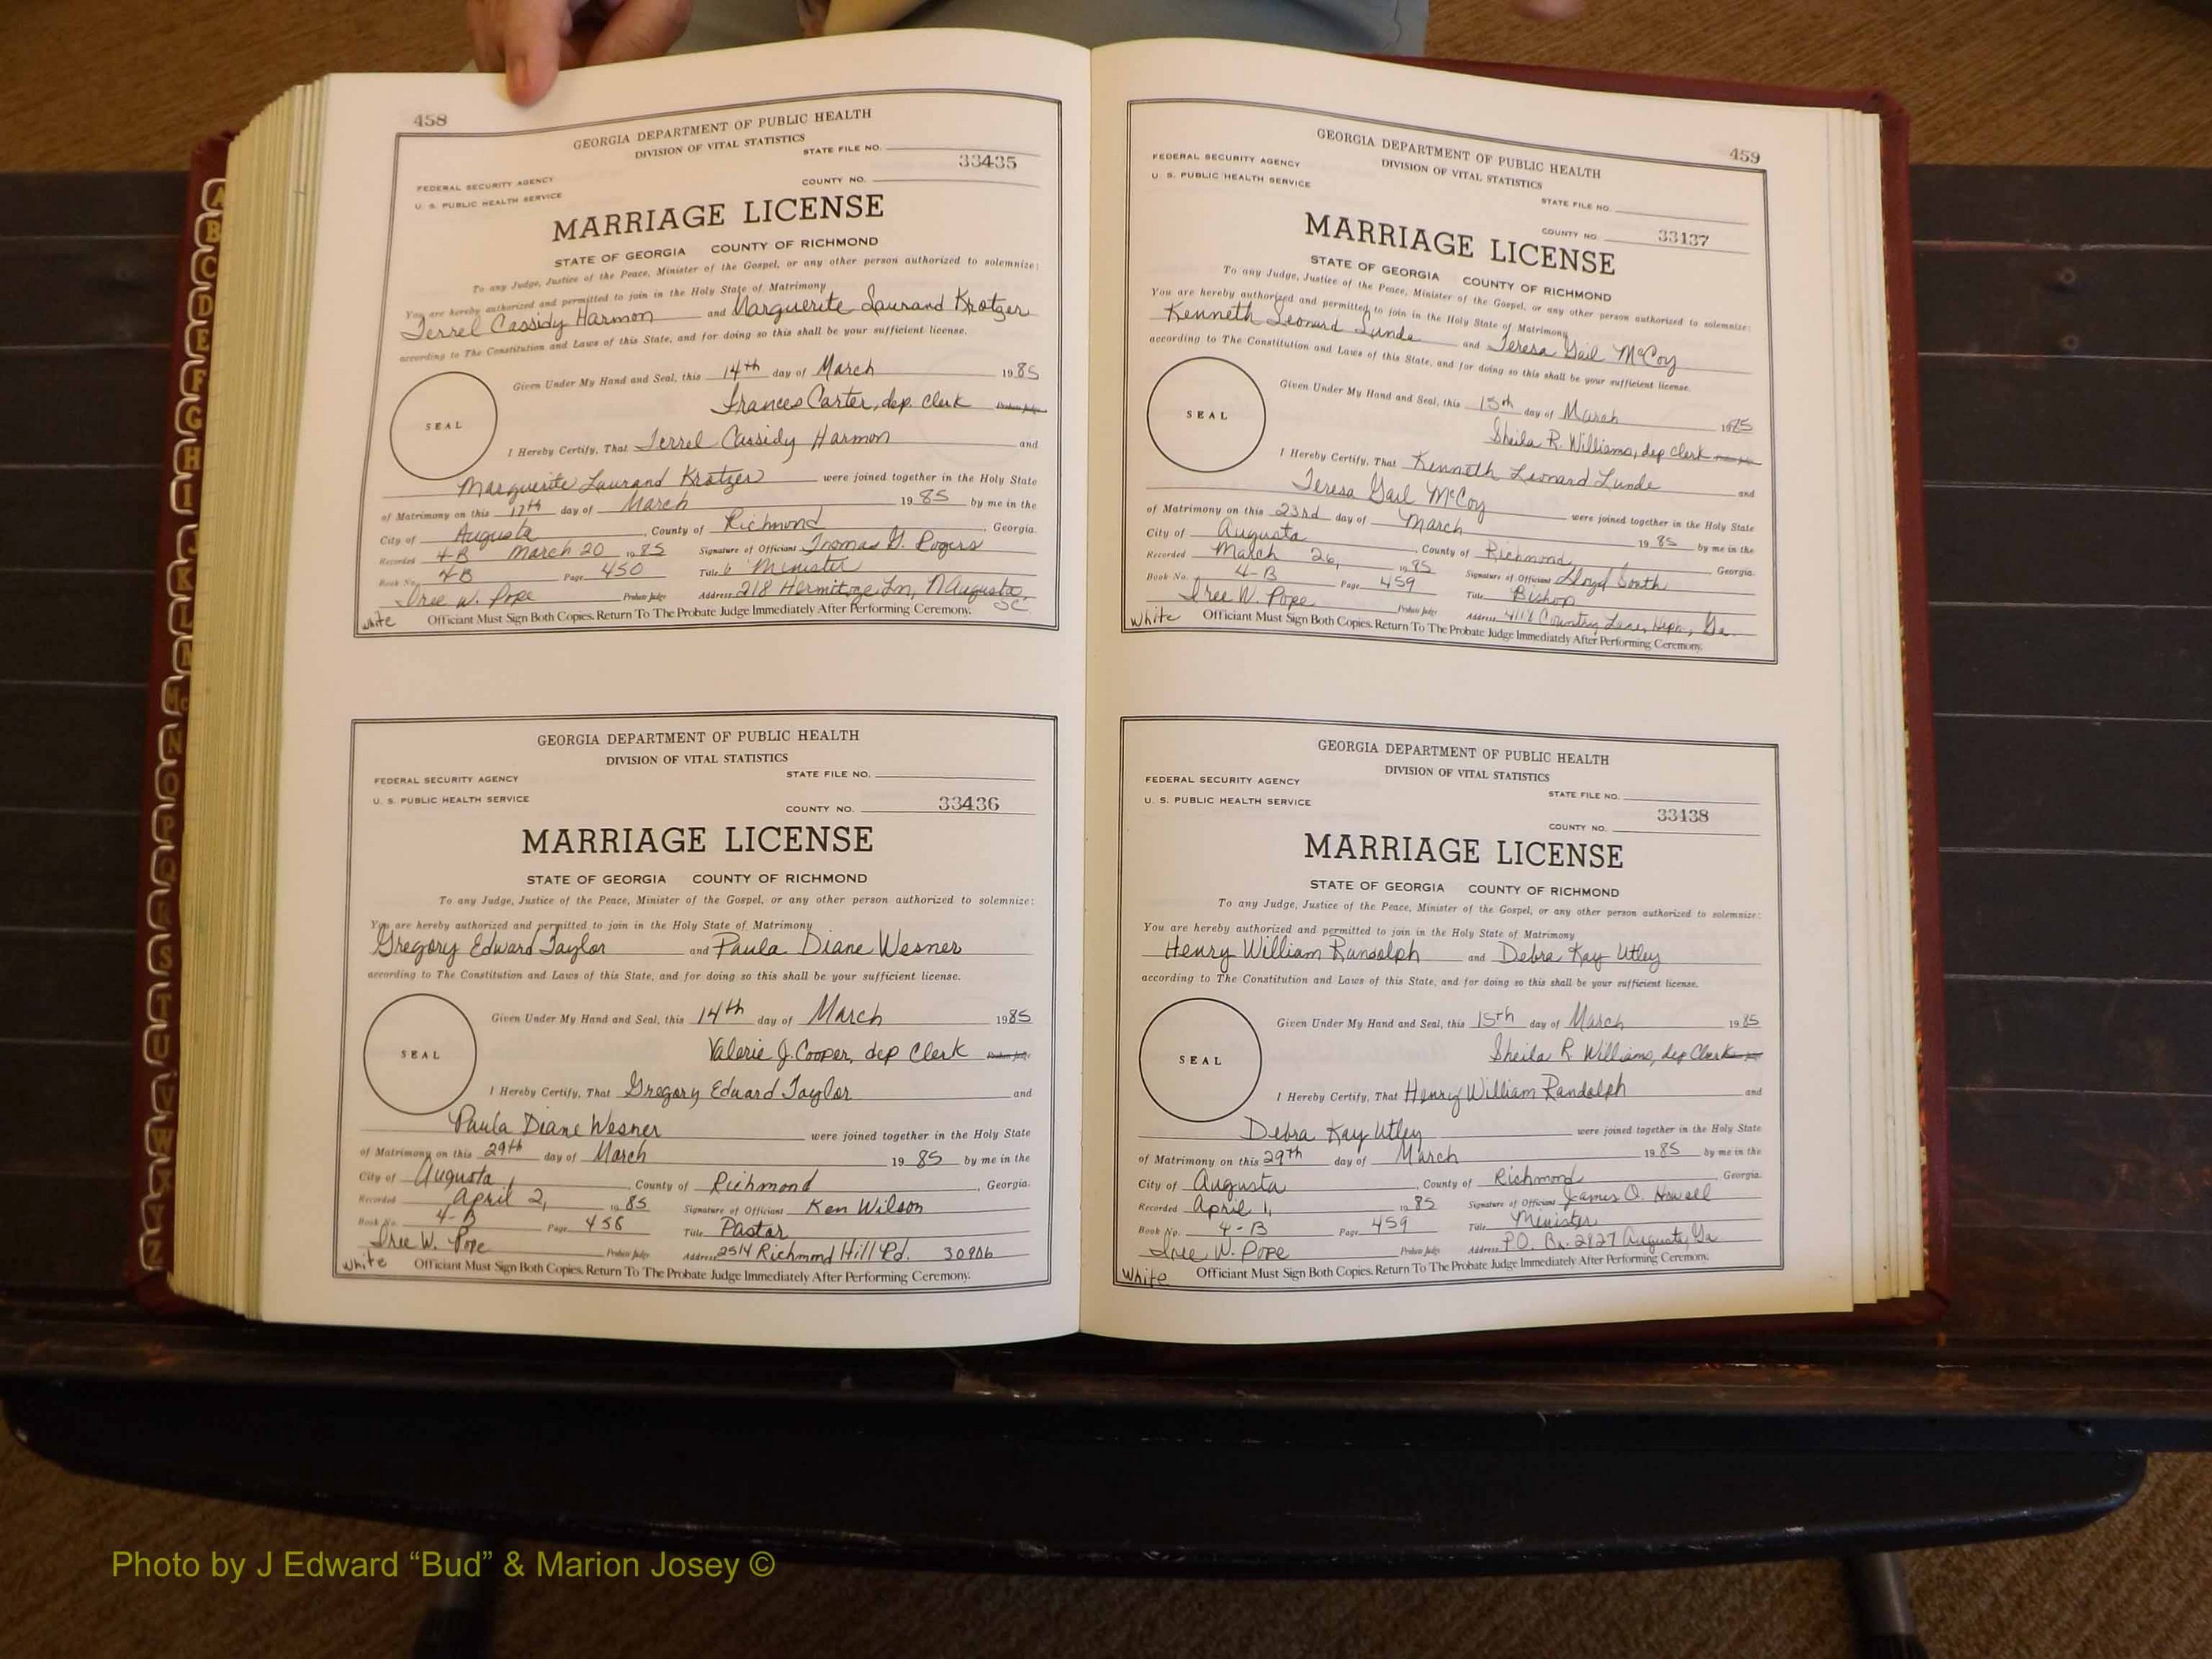 458
GEORGIA DEPARTMENT OF PUBLIC HEALTH
DIVISION OF VITAL STATISTICS
STATE FILE NO.
33435
FEDERAL SECURITY AGENCY
COUNTY NO.
U. S. PUBLIC HEALTH SERVICE
MARRIAGE LICENSE
STATE OF GEORGIA COUNTY OF RICHMOND
To any Judge, Justice of the Peace, Minister of the Gospel, or any other person authorized to solemnize:
You are hereby authorized and permitted to join in the Holy State of Matrimony
Terrel Cassidy Harmon and Marguerite Laurand Krotzer
according to The Constitution and Laws of this State, and for doing so this shall be your sufficient license.
Given Under My Hand and Seal, this 14th day of March 1985
Frances Carter, dep. Clerk Probate Judge
SEAL
I Hereby Certify, That Terrel Cassidy Harmon and
Marguerite Laurand Krotzer were joined together in the Holy State
of Matrimony on this 17th day of March 1985 by me in the
City of Augusta, County of Richmond, Georgia.
Recorded 4-B March 20 1985 Signature of Officiant Thomas G. Rogers
Book No. 4-B Page 450 Title Minister
Iree W. Pope Probate Judge Address 218 Hermitage Ln, N Augusta, SC
White Officiant Must Sign Both Copies. Return To The Probate Judge Immediately After Performing Ceremony.
GEORGIA DEPARTMENT OF PUBLIC HEALTH
DIVISION OF VITAL STATISTICS
FEDERAL SECURITY AGENCY STATE FILE NO.
U. S. PUBLIC HEALTH SERVICE COUNTY NO. 33436
MARRIAGE LICENSE
STATE OF GEORGIA COUNTY OF RICHMOND
To any Judge, Justice of the Peace, Minister of the Gospel, or any other person authorized to solemnize:
You are hereby authorized and permitted to join in the Holy State of Matrimony
Gregory Edward Taylor and Paula Diane Wesner
according to The Constitution and Laws of this State, and for doing so this shall be your sufficient license.
Given Under My Hand and Seal, this 14th day of March 1985
Valerie J. Cooper, dep Clerk Probate Judge
SEAL
I Hereby Certify, That Gregory Edward Taylor and
Paula Diane Wesner were joined together in the Holy State
of Matrimony on this 29th day of March 1985 by me in the
City of Augusta, County of Richmond, Georgia.
Recorded April 2, 1985 Signature of Officiant Ken Wilson
Book No. 4-B Page 458 Title Pastor
Iree W. Pope Probate Judge Address 2514 Richmond Hill Rd. 30906
White Officiant Must Sign Both Copies. Return To The Probate Judge Immediately After Performing Ceremony.
459
GEORGIA DEPARTMENT OF PUBLIC HEALTH
DIVISION OF VITAL STATISTICS
FEDERAL SECURITY AGENCY
U. S. PUBLIC HEALTH SERVICE
STATE FILE NO.
COUNTY NO. 33437
MARRIAGE LICENSE
STATE OF GEORGIA COUNTY OF RICHMOND
To any Judge, Justice of the Peace, Minister of the Gospel, or any other person authorized to solemnize:
You are hereby authorized and permitted to join in the Holy State of Matrimony
Kenneth Leonard Lunde and Teresa Gail McCoy
according to The Constitution and Laws of this State, and for doing so this shall be your sufficient license.
Given Under My Hand and Seal, this 15th day of March 1985
Sheila R. Williams, dep Clerk Probate Judge
SEAL
I Hereby Certify, That Kenneth Leonard Lunde and
Teresa Gail McCoy were joined together in the Holy State
of Matrimony on this 23rd day of March 1985 by me in the
City of Augusta, County of Richmond, Georgia.
Recorded March 26, 1985 Signature of Officiant Lloyd South
Book No. 4-B Page 459 Title Bishop
Iree W. Pope Probate Judge Address Country Lane, Heph., Ga.
White Officiant Must Sign Both Copies. Return To The Probate Judge Immediately After Performing Ceremony.
GEORGIA DEPARTMENT OF PUBLIC HEALTH
DIVISION OF VITAL STATISTICS
FEDERAL SECURITY AGENCY
STATE FILE NO.
U. S. PUBLIC HEALTH SERVICE
33438
COUNTY NO.
MARRIAGE LICENSE
STATE OF GEORGIA COUNTY OF RICHMOND
To any Judge, Justice of the Peace, Minister of the Gospel, or any other person authorized to solemnize:
You are hereby authorized and permitted to join in the Holy State of Matrimony
Henry William Randolph and Debra Kay Utley
according to The Constitution and Laws of this State, and for doing so this shall be your sufficient license.
Given Under My Hand and Seal, this 15th day of March 1985
Sheila R. Williams, dep Clerk
SEAL
I Hereby Certify, That Henry William Randolph and
Debra Kay Utley were joined together in the Holy State
of Matrimony on this 29th day of March 1985 by me in the
City of Augusta, County of Richmond, Georgia.
Recorded April 1, 1985 Signature of Officiant James O. Howell
Book No. 4-B Page 459 Title Minister
Iree W. Pope Probate Judge Address P.O. Bx. 2927 Augusta, Ga
White Officiant Must Sign Both Copies. Return To The Probate Judge Immediately After Performing Ceremony.
A
B
C
D
E
F
G
H
I
J
K
L
M
Mc
N
O
P
Q
R
S
T
U
V
W
Y
Z
Photo by J Edward “Bud” & Marion Josey ©